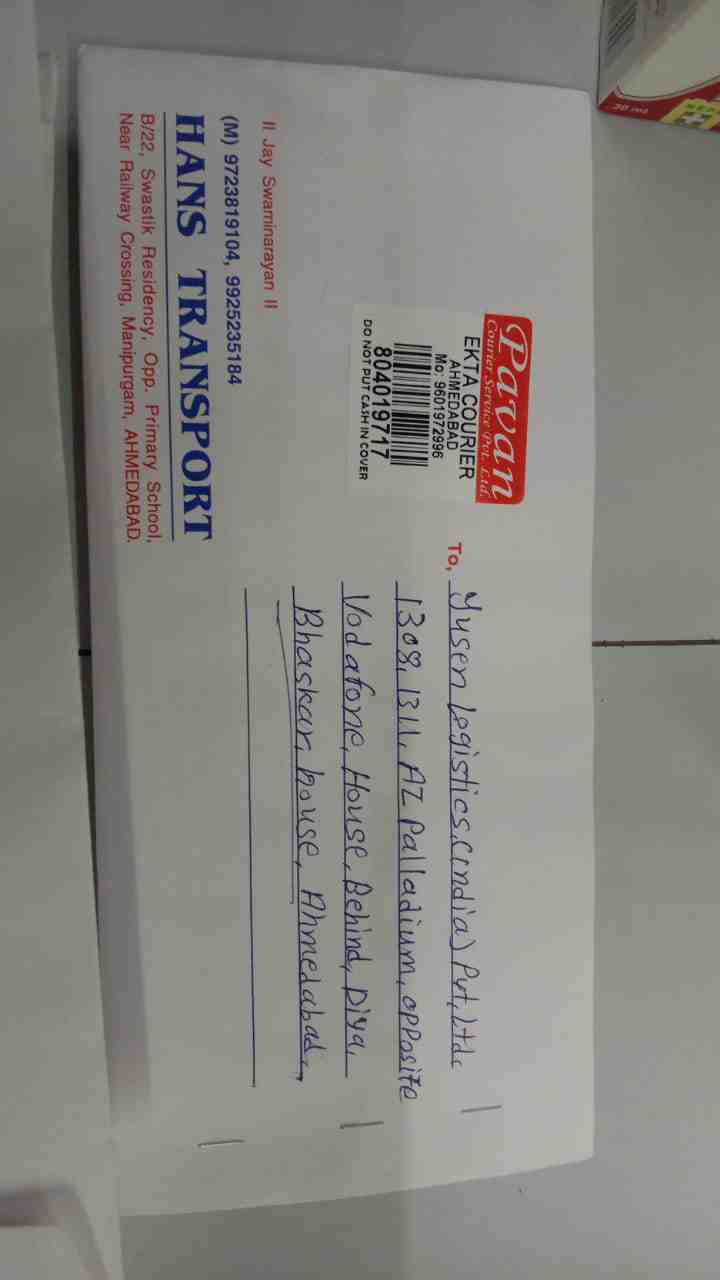 Pavan
Courier Service Pvt. Ltd.
EKTA COURIER
AHMEDABAD
Mo: 9601972996
804019717
DO NOT PUT CASH IN COVER
To, Yusen Logistics, (india) Pvt, Ltd.
1308, 1311, AZ Palladium, opposite
Vodafone, House, Behind, Diya,
Bhaskar, house, Ahmedabad,
॥ Jay Swaminarayan ॥
(M) 9723819104, 9925235184
HANS TRANSPORT
B/22, Swastik Residency, Opp. Primary School,
Near Railway Crossing, Manipurgam, AHMEDABAD.